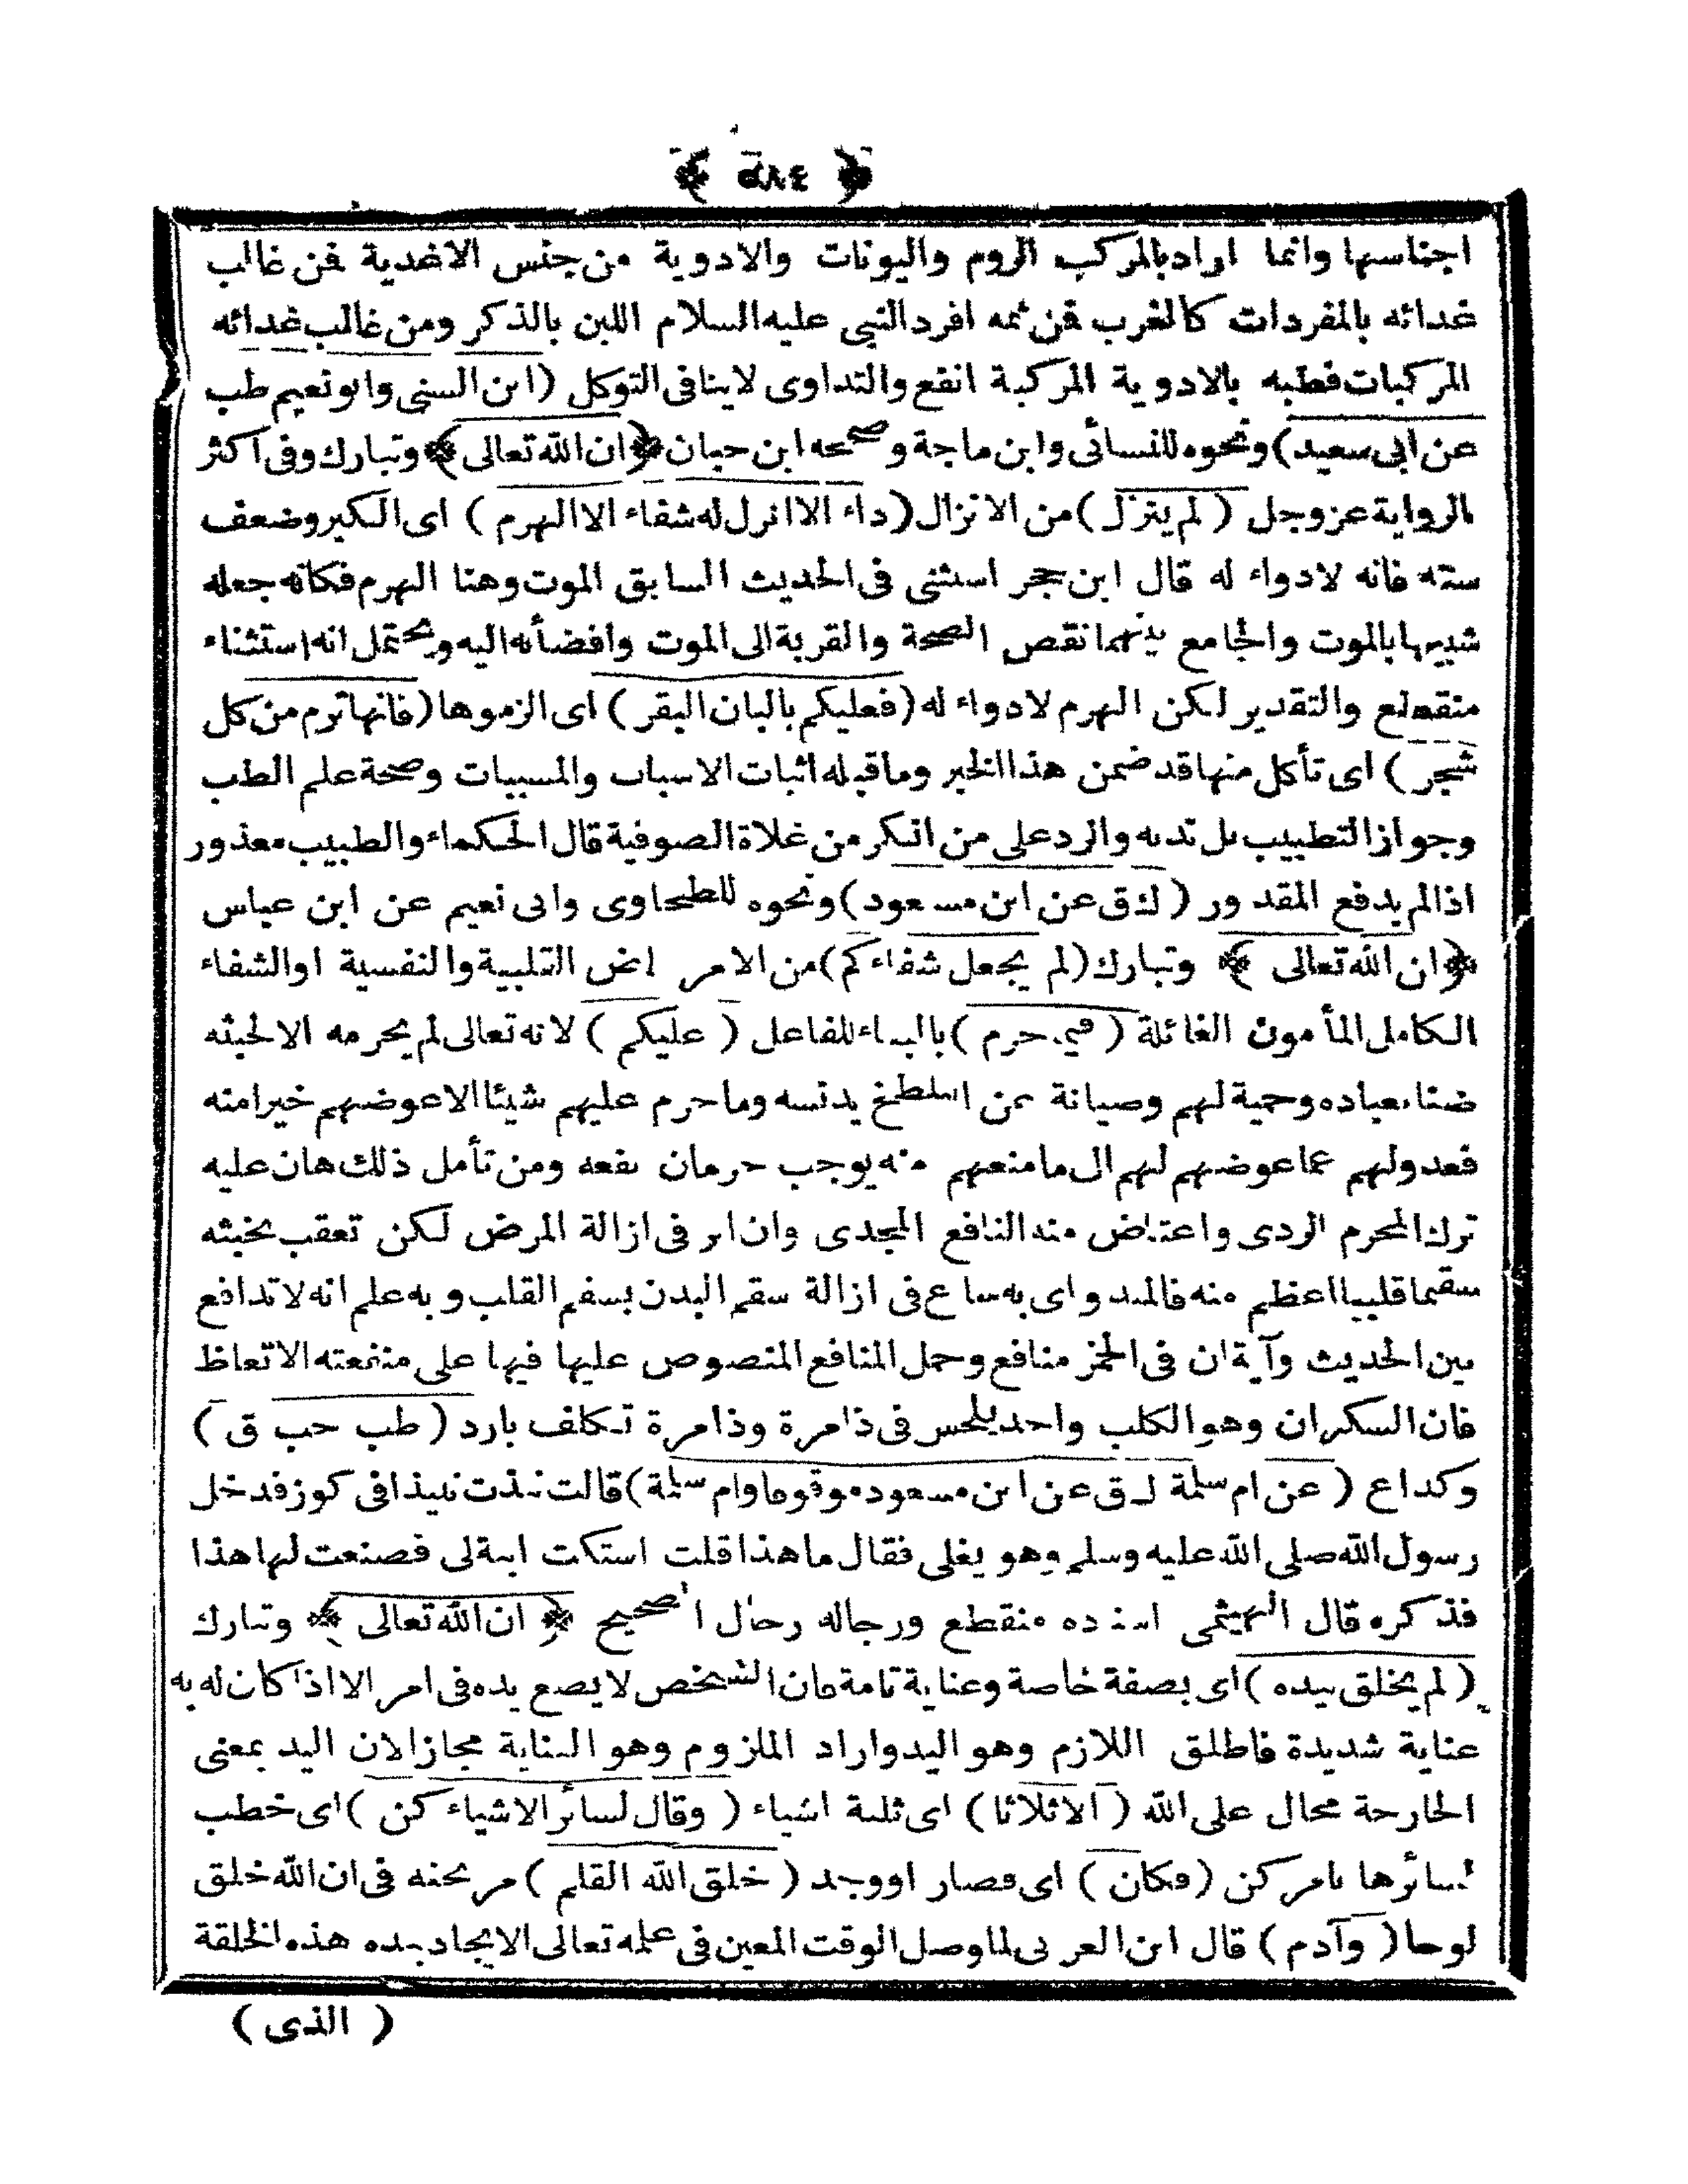 ﴿ ٥٨٤ ﴾
اجناسها وانما اراد بالمركب الروم واليونات والادوية من جنس الاغدية فمن غالب
غدائه بالمفردات كالغرب فمن ثمه افرد النبي عليه السلام اللبن بالذكر ومن غالب غدائه
المركبات فطبه بالادوية المركبة انفع والتداوى لاينافى التوكل (ابن السنى وابو نعيم طب
عن ابى سعيد) ونحوه للنسائى وابن ماجة وصححه ابن حبان ﴿ان الله تعالى﴾ وتبارك وفى اكثر
الرواية عزوجل (لم ينزل) من الانزال (داء الا انزل له شفاء الا الهرم) اى الكبر وضعف
سنه فانه لادواء له قال ابن حجر استثنى فى الحديث السابق الموت وهنا الهرم فكانه جعله
شبيها بالموت والجامع بينهما نقص الصحة والقربة الى الموت وافضأ ئه اليه ويحتمل انه استثناء
منقطع والتقدير لكن الهرم لادواء له (فعليكم بالبان البقر) اى الزموها (فانها ترم من كل
شجر) اى تأكل منها قد ضمن هذا الخبر وما قبله اثبات الاسباب والمسببات وصحة علم الطب
وجواز التطبيب بل ندبه والرد على من انكر من غلاة الصوفية قال الحكماء والطبيب معذور
اذا لم يدفع المقدور (ك ق عن ابن مسعود) ونحوه للطحاوى وابى نعيم عن ابن عباس
﴿ان الله تعالى﴾ وتبارك (لم يجعل شفاءكم) من الامراض القلبية والنفسية او الشفاء
الكامل المأمون الغائلة (فيما حرم) بالبناء للفاعل (عليكم) لانه تعالى لم يحرمه الا لخبثه
ضنا بعباده وحمية لهم وصيانة عن التلطخ بدنسه وما حرم عليهم شيئا الاعوضهم خيرا منه
فعدولهم عما عوضهم لهم الى ما منعهم منه يوجب حرمان نفعه ومن تأمل ذلك هان عليه
ترك المحرم الردى واعتاض منه النافع المجدى وان اثر فى ازالة المرض لكن تعقب بخبثه
سقيما قلبيا اعظم منه فالمداوى به ساع فى ازالة سقم البدن بسقم القلب وبه علم انه لاتدافع
بين الحديث وآية ان فى الخمر منافع وحمل المنافع المنصوص عليها فيها على منفعته الاتعاظ
فان السكران وهو الكلب واحد يلحس فى ذا مرة وذا مرة تكلف بارد (طب حب ق)
وكداع (عن ام سلمة ك ق عن ابن مسعود موقوفا وام سلمة) قالت نبذت نبيذا فى كوز فدخل
رسول الله صلى الله عليه وسلم وهو يغلى فقال ما هذا قلت استكت ابنة لى فصنعت لها هذا
فذكره قال الهيثمى اسناده منقطع ورجاله رجال الصحيح ﴿ان الله تعالى﴾ وتبارك
(لم يخلق بيده) اى بصفة خاصة وعناية تامة فان الشخص لايضع يده فى امر الا اذا كان له به
عناية شديدة فاطلق اللازم وهو اليد واراد الملزوم وهو العناية مجازا لان اليد بمعنى
الجارحة محال على الله (الاثلاثا) اى ثلثة اشياء (وقال لسائر الاشياء كن) اى خطب
لسائرها بامر كن (فكان) اى فصار او وجد (خلق الله القلم) مر بحثه فى ان الله خلق
لوحا (وآدم) قال ابن العربى لما وصل الوقت المعين فى علمه تعالى الايجاد بيده هذه الخلقة
(الذى)